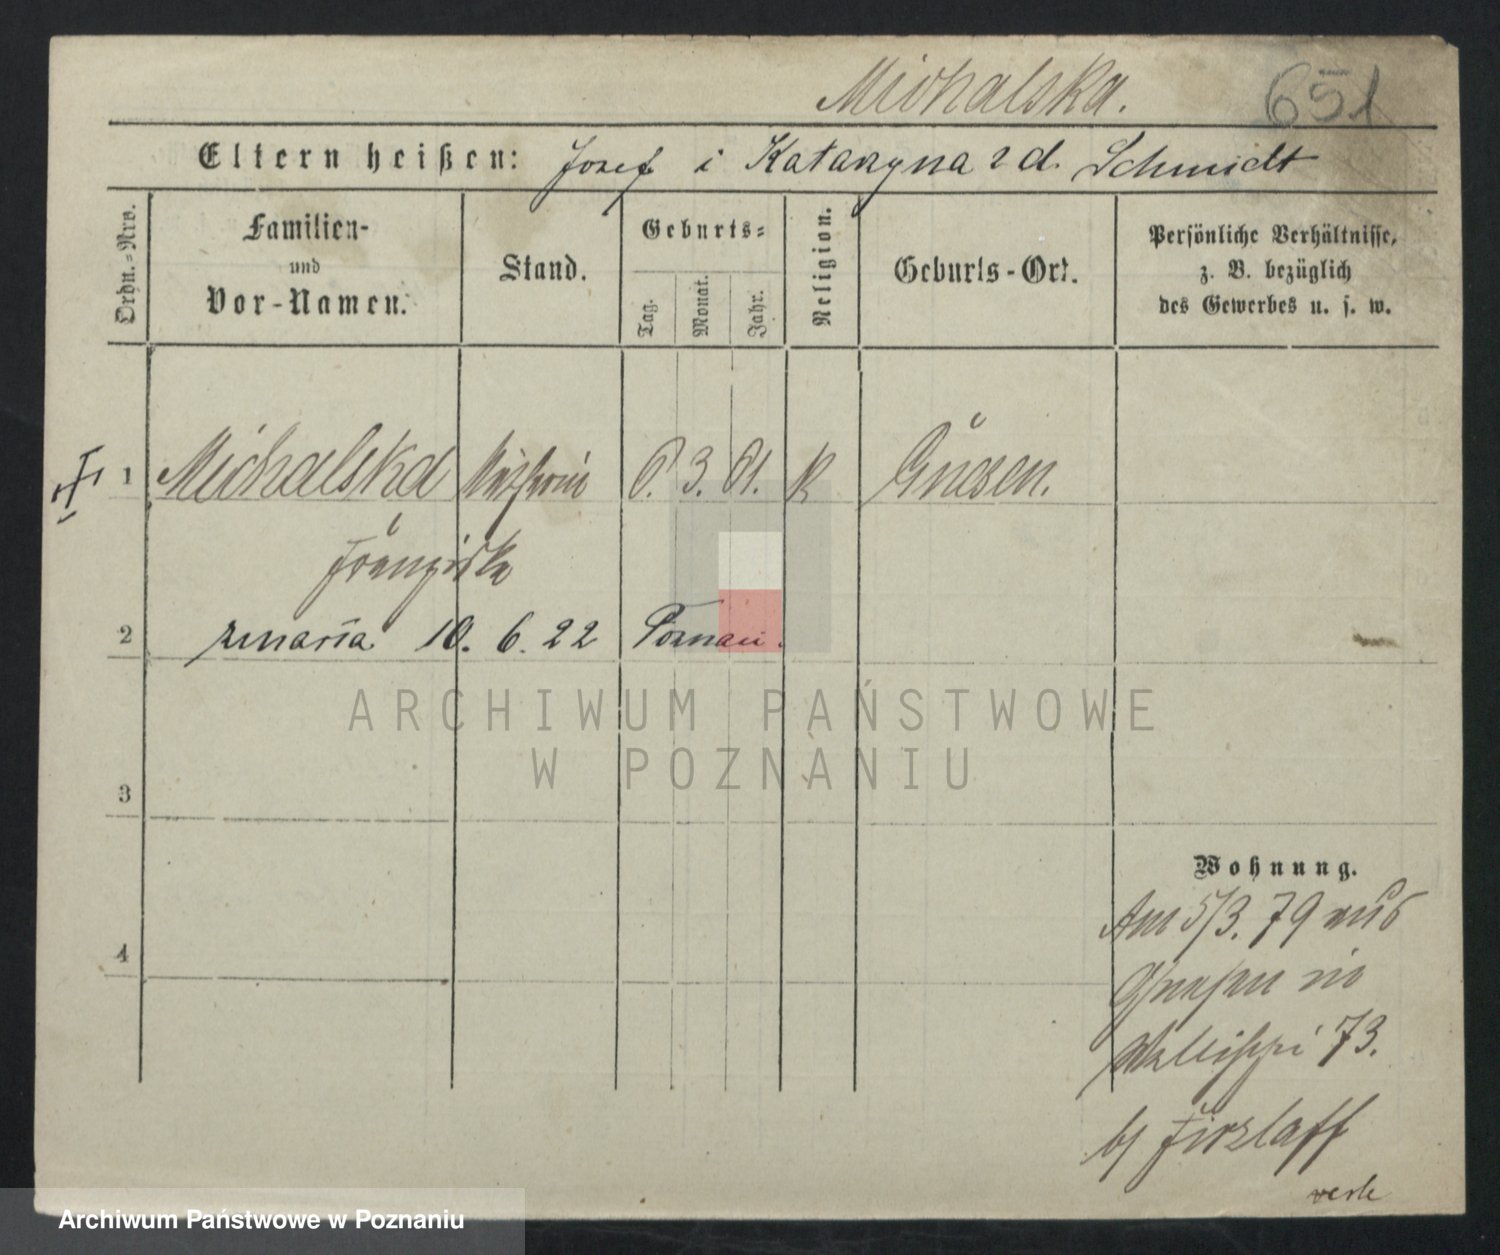 Michalska.
651
Eltern heißen: Jozef i Katarzyna z d. Schmidt
Ordn.-Nro.
Familien-
und
Vor-Namen.
Stand.
Geburts-
Tag.
Monat.
Jahr.
Religion.
Geburts-Ort.
Persönliche Verhältnisse,
z. B. bezüglich
des Gewerbes u. s. w.
1 Michalska 3. K Gnesen.
Franziska
2 zmarła 10. 6. 22 Poznań.
ARCHIWUM PAŃSTWOWE
W POZNANIU
3
Wohnung.
4
Am 5/3. 79 aus
Gnesen in
Wallischei 73.
b/ Firzlaff
Archiwum Państwowe w Poznaniu